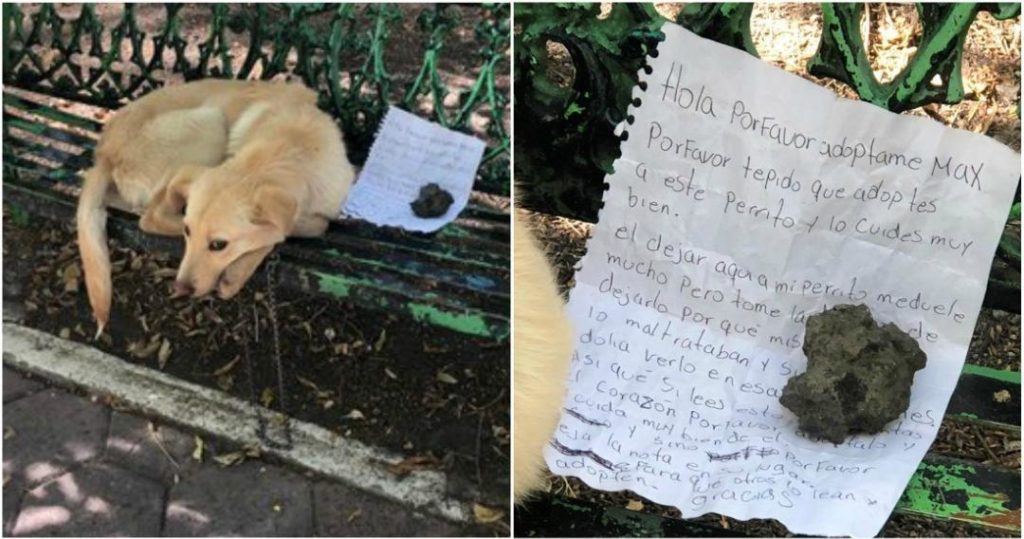 Hola PorFavor adoptame MAX
PorFavor tepido que adoptes
a este Perrito y lo cuides muy
bien.
el dejar aqui a mi perrito meduele
mucho Pero tome la de
dejarlo por qué mis
lo maltrataban y
dolia verlo en esas
Asi qué si lees esto
el corazón Porfavor
cuida muy bien de el, PorFavor
y sino
deja la nota en su lugar
Para que otros lo lean y
adopten. gracias